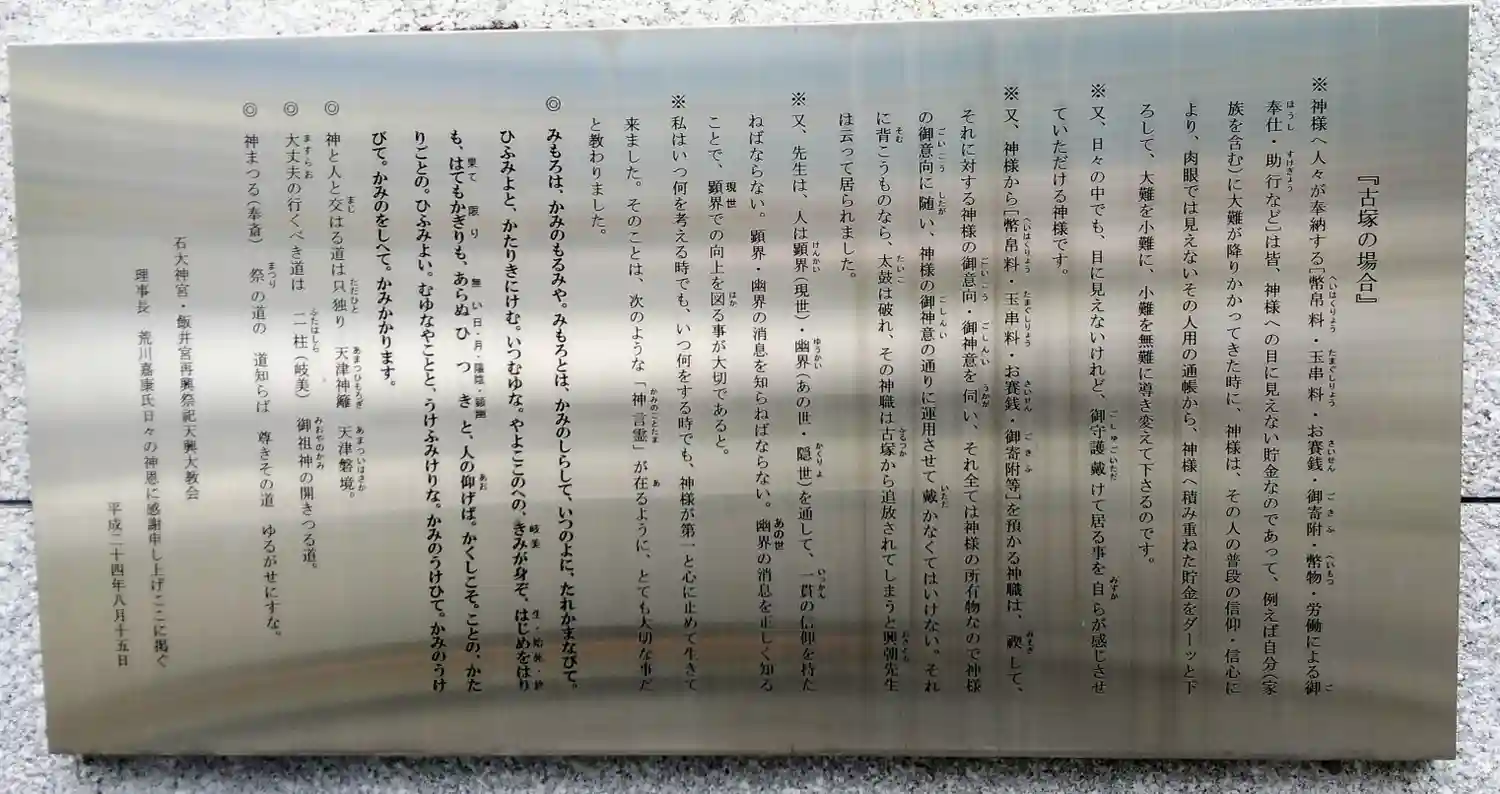 『古塚の場合』
※神様へ人々が奉納する[幣帛料・玉串料・お賽銭・御寄附・幣物・労働による御
奉仕・助行など]は皆、神様への目に見えない貯金なのであって、例えば自分(家
族を含む)に大難が降りかかってきた時に、神様は、その人の普段の信仰・信心に
より、肉眼では見えないその人用の通帳から、神様へ積み重ねた貯金をダーッと下
ろして、大難を小難に、小難を無難に導き変えて下さるのです。
※又、日々の中でも、目に見えないけれど、御守護戴けて居る事を自らが感じさせ
ていただける神様です。
※又、神様から[幣帛料・玉串料・お賽銭・御寄附等]を預かる神職は、禊して、
それに対する神様の御意向・御神意を伺い、それ全ては神様の所有物なので神様
の御意向に随い、神様の御神意の通りに運用させて戴かなくてはいけない。それ
に背こうものなら、太鼓は破れ、その神職は古塚から追放されてしまうと興朝先生
は云って居られました。
※又、先生は、人は顕界(現世)・幽界(あの世・隠世)を通して、一貫の信仰を持た
ねばならない。顕界・幽界の消息を知らねばならない。幽界の消息を正しく知る
ことで、顕界での向上を図る事が大切であると。
※私はいつ何を考える時でも、いつ何をする時でも、神様が第一と心に止めて生きて
来ました。そのことは、次のような「神言霊」が在るように、とても大切な事だ
と教わりました。
◎みもろは、かみのもるみや。みもろとは、かみのしらして、いつのよに、たれかまなびて。
ひふみよと、かたりきにけむ。いつむゆな。やよここのへの、きみが身ぞ、はじめをはり
も、はてもかぎりも、あらぬひつきと、人の仰げば。かくしこそ。ことの、かた
りごとの。ひふみよい。むゆなやことと、うけふみけりな。かみのうけひて。かみのうけ
びて。かみのをしへて。かみかかります。
◎神と人と交はる道は只独り 天津神籬 天津磐境。
◎大丈夫の行くべき道は 二柱(岐美) 御祖神の開きつる道。
◎神まつる(奉斎) 祭の道の 道知らば 尊きその道 ゆるがせにすな。
石大神宮・飯井宮再興祭祀天興大教会
理事長 荒川嘉康氏日々の神恩に感謝申し上げここに掲ぐ
平成二十四年八月十五日